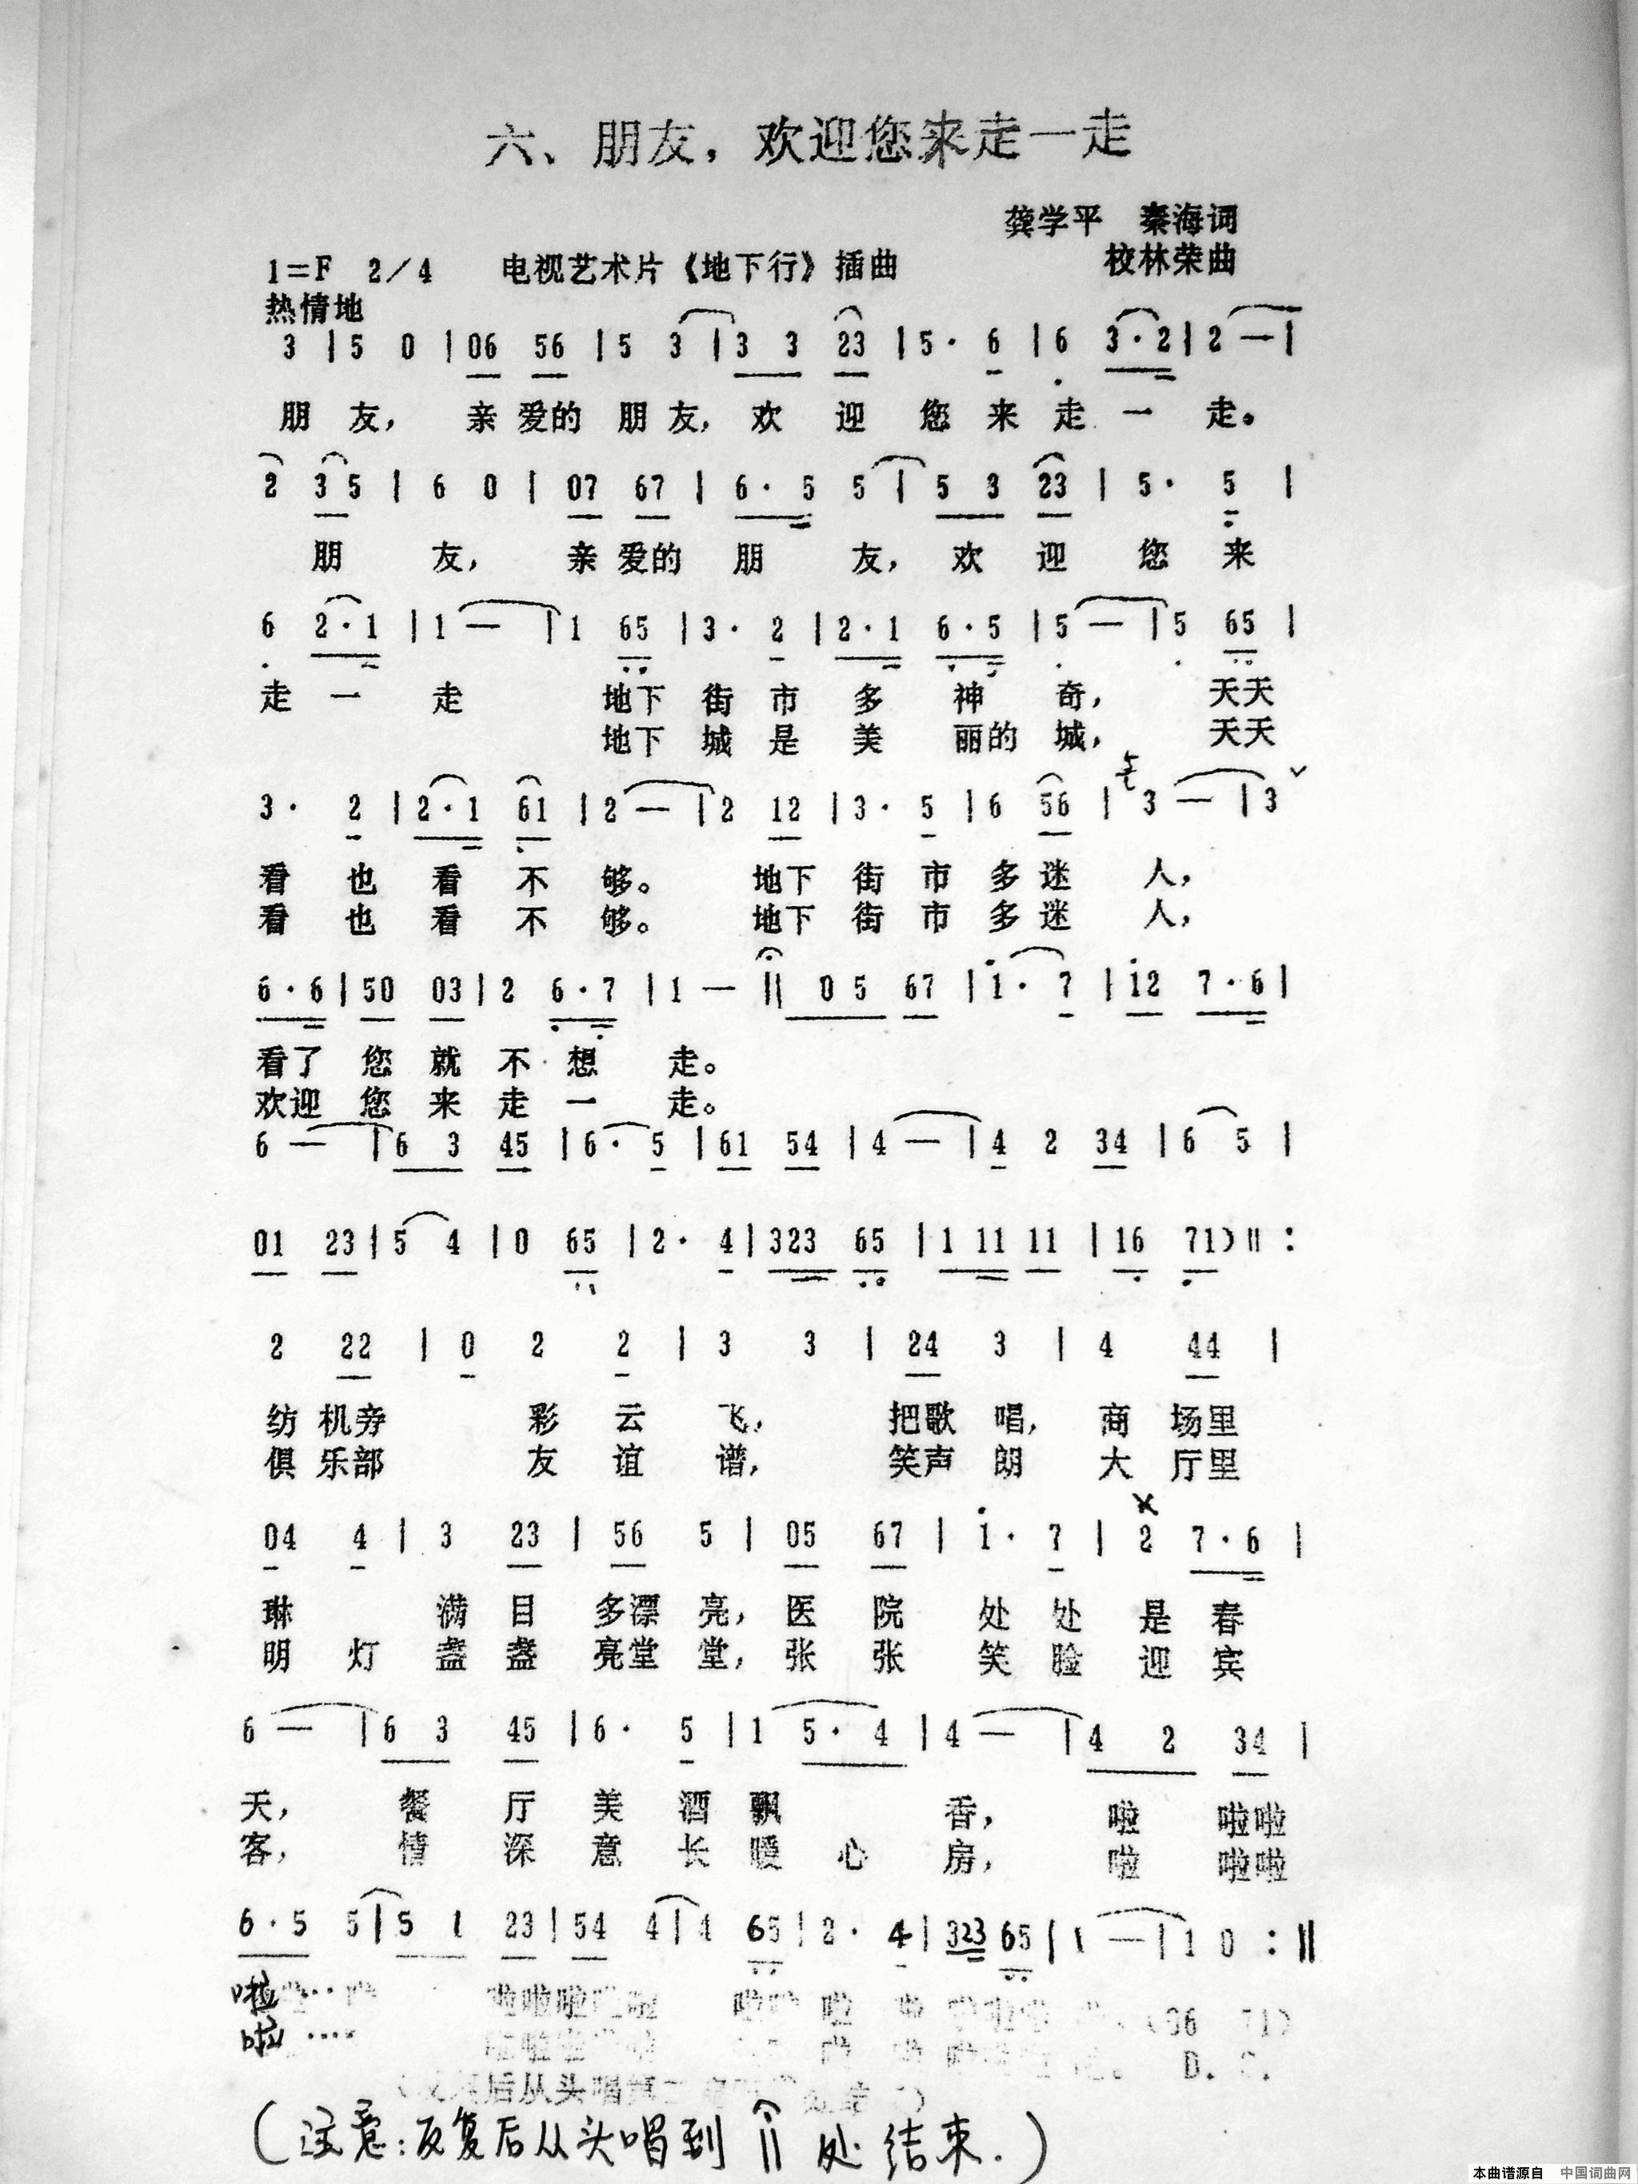 六、朋友，欢迎您来走一走
龚学平 秦海词
1=F 2/4 电视艺术片《地下行》插曲 校林荣曲
热情地
3 | 5 0 | 06 56 | 5 3 | 3 3 23 | 5· 6 | 6 3·2 | 2 — |
朋 友， 亲 爱的 朋 友， 欢 迎 您 来 走 一 走。
2 35 | 6 0 | 07 67 | 6·5 5 | 5 3 23 | 5· 5 |
朋 友， 亲 爱的 朋 友， 欢 迎 您 来
6 2·1 | 1 — | 1 65 | 3· 2 | 2·1 6·5 | 5 — | 5 65 |
走 一 走 地下 街 市 多 神 奇， 天天
地下 城 是 美 丽的 城， 天天
3· 2 | 2·1 61 | 2 — | 2 12 | 3· 5 | 6 56 | 3 — | 3
看 也 看 不 够。 地下 街 市 多 迷 人，
看 也 看 不 够。 地下 街 市 多 迷 人，
6·6 | 50 03 | 2 6·7 | 1 — || 0 5 67 | 1· 7 | 12 7·6 |
看了 您 就 不 想 走。
欢迎 您 来 走 一 走。
6 — | 6 3 45 | 6· 5 | 61 54 | 4 — | 4 2 34 | 6 5 |
01 23 | 5 4 | 0 65 | 2· 4 | 323 65 | 1 11 11 | 16 71) || :
2 22 | 0 2 2 | 3 3 | 24 3 | 4 44 |
纺 机旁 彩 云 飞， 把歌 唱， 商 场里
俱 乐部 友 谊 谱， 笑声 朗 大 厅里
04 4 | 3 23 | 56 5 | 05 67 | 1· 7 | 2 7·6 |
琳 满 目 多漂 亮， 医 院 处 处 是 春
明 灯 盏 盏 亮堂 堂， 张 张 笑 脸 迎 宾
6 — | 6 3 45 | 6· 5 | 1 5·4 | 4 — | 4 2 34 |
天， 餐 厅 美 酒 飘 香， 啦 啦啦
客， 情 深 意 长 暖 心 房， 啦 啦啦
6·5 5 | 5 1 23 | 54 4 | 4 65 | 2· 4 | 323 65 | 1 — | 1 0 : ||
啦
啦 ····
后从头唱
(注意：反复后从头唱到 || 处 结束.)
本曲谱源自 中国词曲网